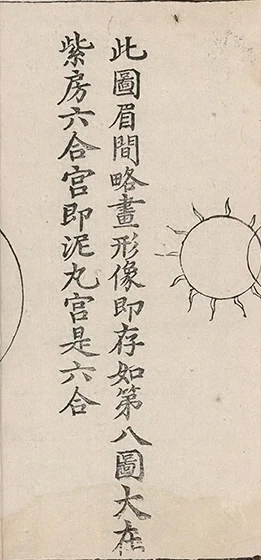 此圖眉間略畫形像即存如第八圖大在
紫房六合宮即泥丸宮是六合